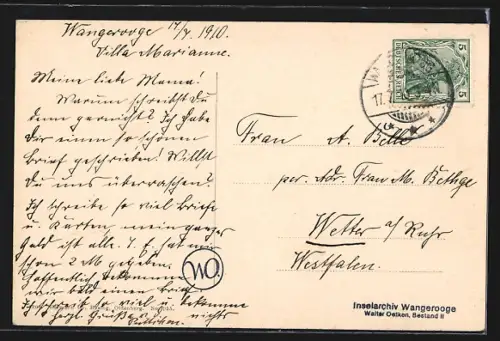 Wangerooge 17/7. 1910.
Villa Marianne.
Meine liebe Mama!
Warum schreibst Du
denn garnicht? Ich habe
Dir einen so schönen
Brief geschrieben! Willst
Du uns überraschen?
Ich schreibe so viel Briefe
u. Karten, mein ganzes
Geld ist alle. T. E. hat mir
schon 2 M gegeben.
Hoffentlich bekommen
wir bald einen Brief
Ich schreibe so viel u. bekomme
nichts
Herzl. Grüße
5 5
DEUTSCHES REICH
17.
Frau A. Belle
per. Adr. Frau M. Bethge
Wetter a/Ruhr
Westfalen.
Inselarchiv Wangerooge
Walter Oetken, Bestand II